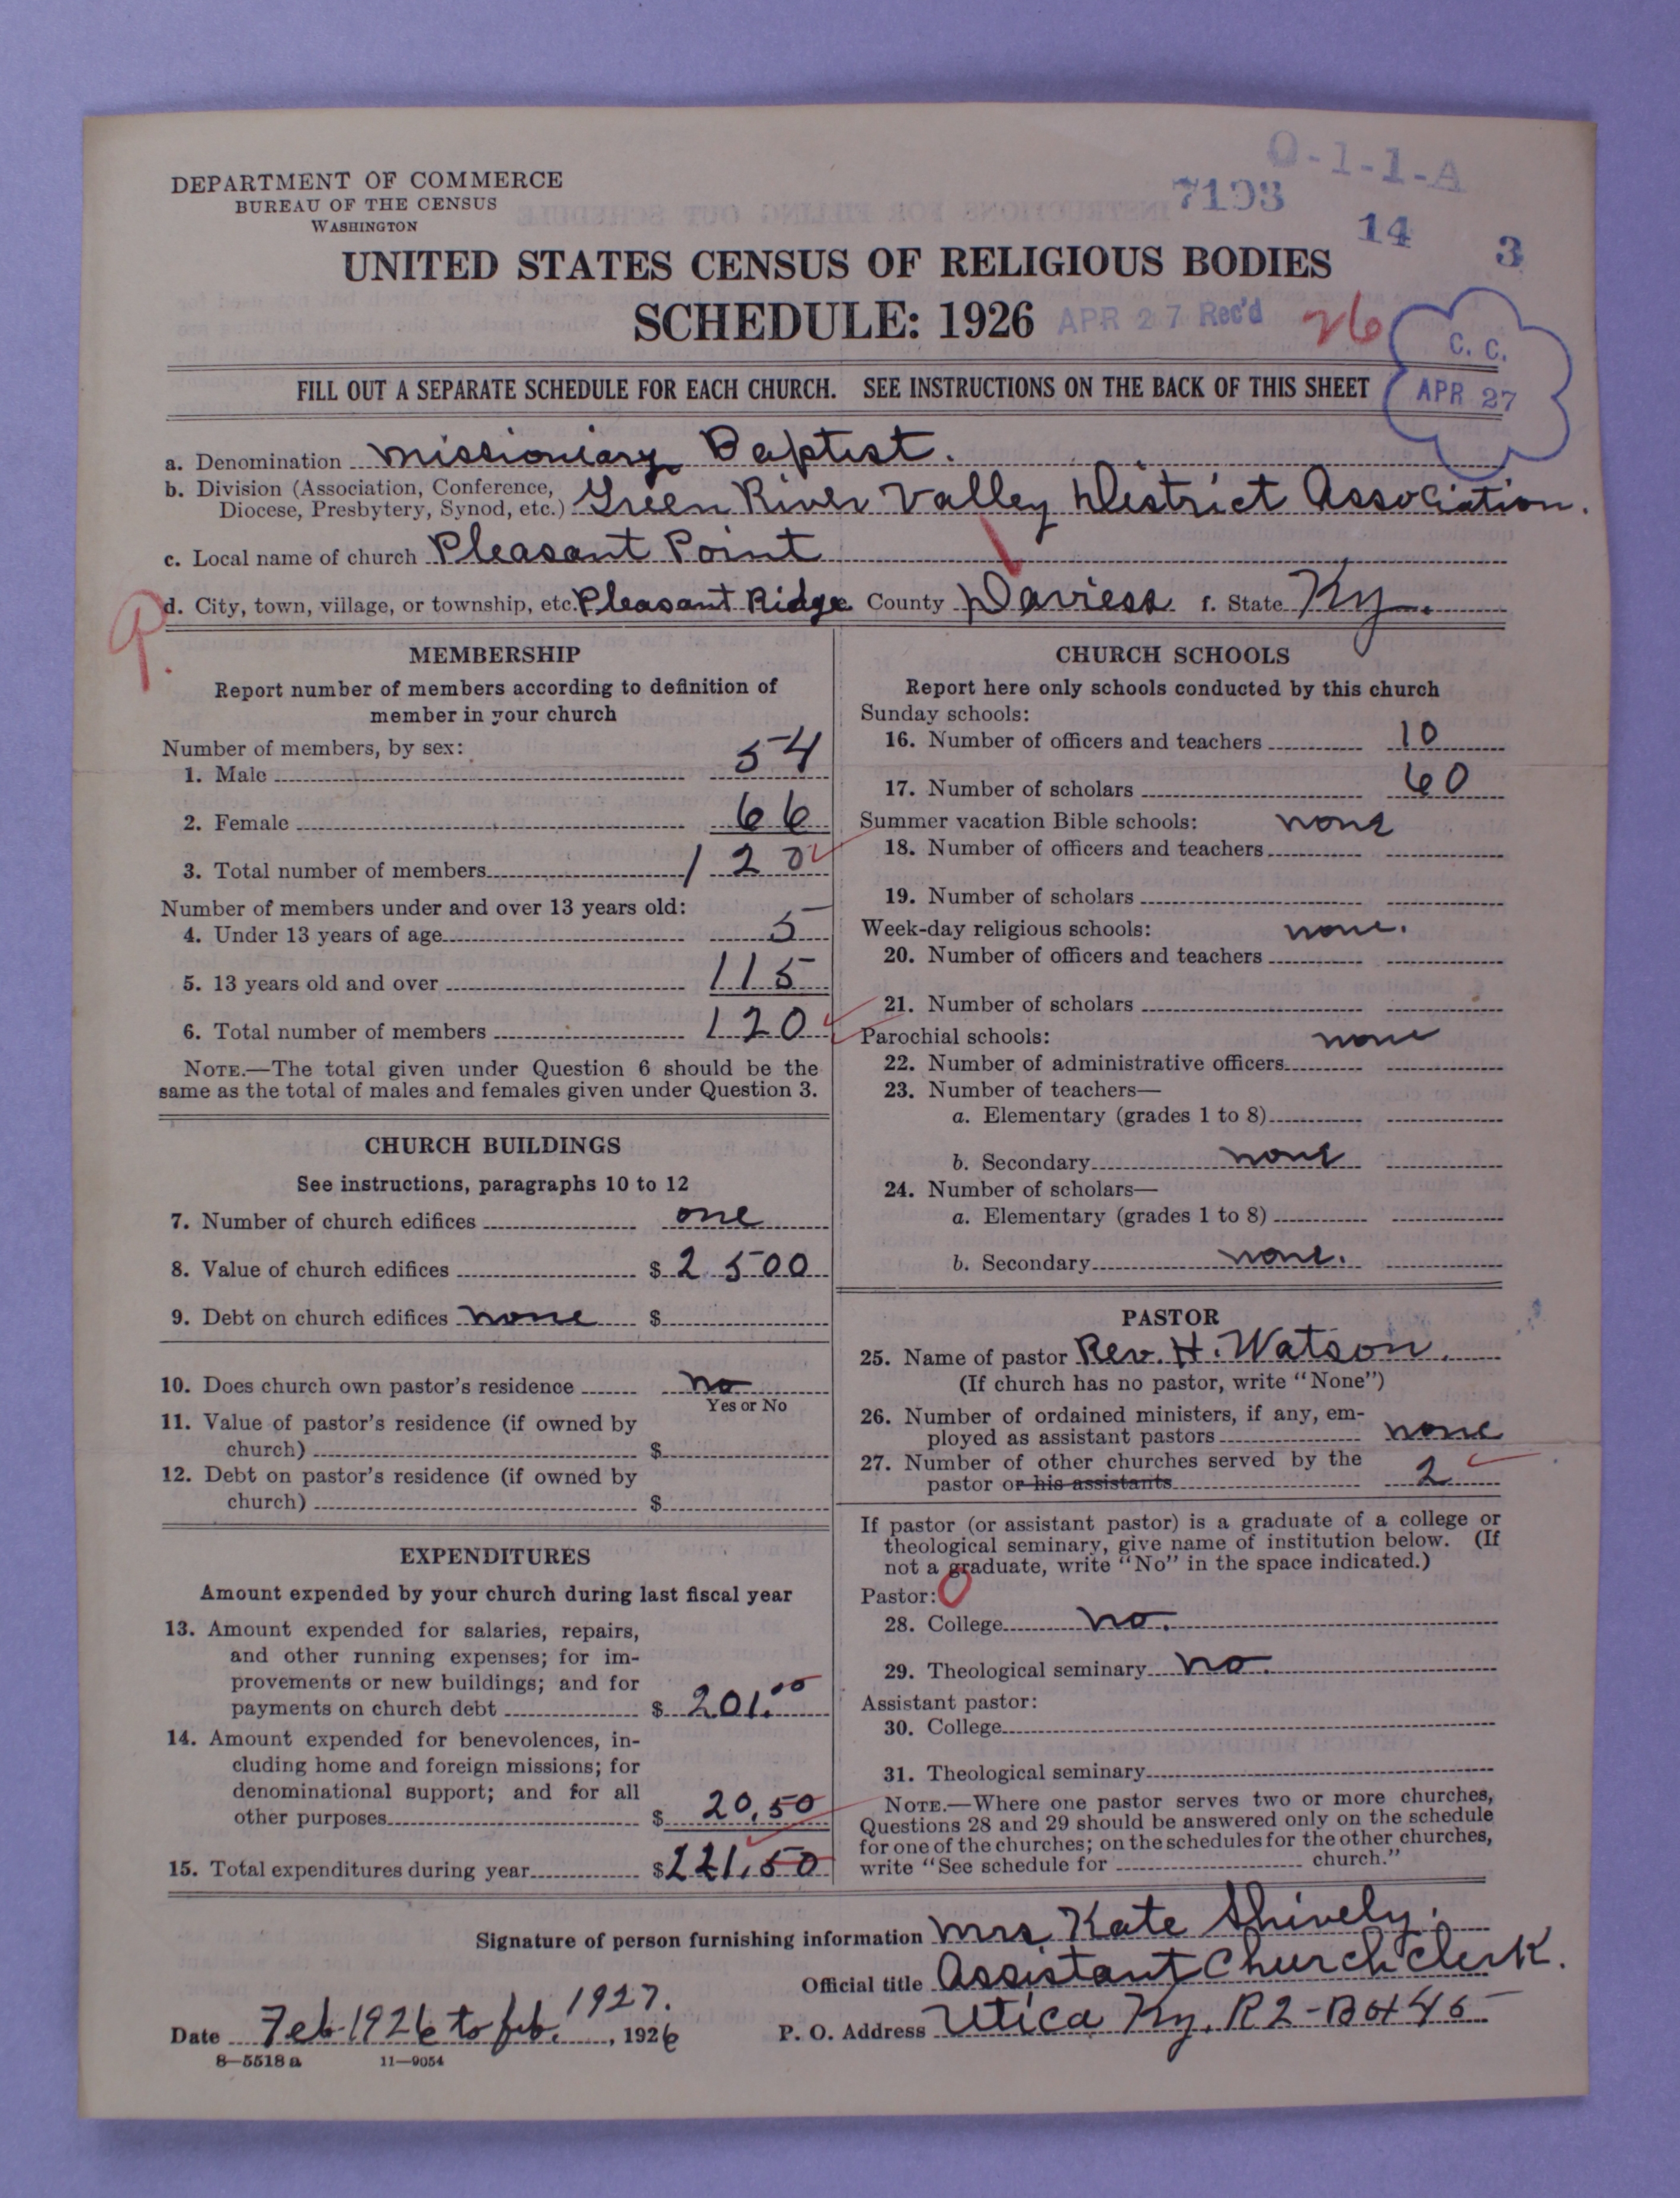 O-1-1-A
DEPARTMENT OF COMMERCE
BUREAU OF THE CENSUS
WASHINGTON
7193
14 3
UNITED STATES CENSUS OF RELIGIOUS BODIES
SCHEDULE: 1926 APR 27 Rec'd 26
C. C.
APR 27
FILL OUT A SEPARATE SCHEDULE FOR EACH CHURCH. SEE INSTRUCTIONS ON THE BACK OF THIS SHEET
a. Denomination Missioniary Baptist.
b. Division (Association, Conference,
Diocese, Presbytery, Synod, etc.) Green River Valley District Association.
c. Local name of church Pleasant Point
d. City, town, village, or township, etc. Pleasant Ridge County Daviess f. State Ky.
MEMBERSHIP
Report number of members according to definition of
member in your church
Number of members, by sex:
1. Male 54
2. Female 66
3. Total number of members 120
Number of members under and over 13 years old:
4. Under 13 years of age 5
5. 13 years old and over 115
6. Total number of members 120
NOTE.—The total given under Question 6 should be the
same as the total of males and females given under Question 3.
CHURCH BUILDINGS
See instructions, paragraphs 10 to 12
7. Number of church edifices one
8. Value of church edifices $ 2500
9. Debt on church edifices none $
10. Does church own pastor's residence no
Yes or No
11. Value of pastor's residence (if owned by
church) $
12. Debt on pastor's residence (if owned by
church) $
EXPENDITURES
Amount expended by your church during last fiscal year
13. Amount expended for salaries, repairs,
and other running expenses; for im-
provements or new buildings; and for
payments on church debt $ 201.00
14. Amount expended for benevolences, in-
cluding home and foreign missions; for
denominational support; and for all
other purposes $ 20.50
15. Total expenditures during year $ 221.50
CHURCH SCHOOLS
Report here only schools conducted by this church
Sunday schools:
16. Number of officers and teachers 10
17. Number of scholars 60
Summer vacation Bible schools: none
18. Number of officers and teachers
19. Number of scholars
Week-day religious schools: none.
20. Number of officers and teachers
21. Number of scholars
Parochial schools: none
22. Number of administrative officers
23. Number of teachers—
a. Elementary (grades 1 to 8)
b. Secondary none
24. Number of scholars—
a. Elementary (grades 1 to 8)
b. Secondary none.
PASTOR
25. Name of pastor Rev. H. Watson.
(If church has no pastor, write "None")
26. Number of ordained ministers, if any, em-
ployed as assistant pastors none
27. Number of other churches served by the
pastor or his assistants 2
If pastor (or assistant pastor) is a graduate of a college or
theological seminary, give name of institution below. (If
not a graduate, write "No" in the space indicated.)
Pastor: 0
28. College no.
29. Theological seminary no.
Assistant pastor:
30. College
31. Theological seminary
NOTE.—Where one pastor serves two or more churches,
Questions 28 and 29 should be answered only on the schedule
for one of the churches; on the schedules for the other churches,
write "See schedule for church."
Signature of person furnishing information Mrs Kate Shively.
Official title Assistant Church Clerk.
Date Feb-1926 to feb. 1927., 1926 P. O. Address Utica Ky. R2-B0X45
8-5518 a 11-9054